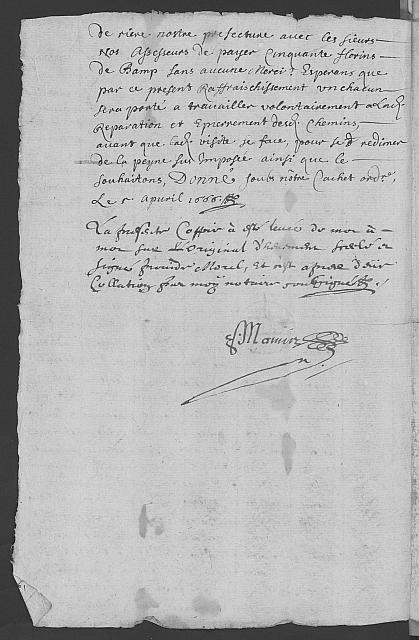 de riere nostre prefecture avec les sieurs
Nos Assesseurs de payer Cinquante florins
de Bamp sans aucune Merci. Esperans que
par ce present Raffraischissement vn chacun
sera porté a travailler volontairement a
Reparation et Epierrement des Chemins,
avant que visite se face, pour se redimer
de la peyne sus Imposée ainsi que le
souhaitons, Donné soubs nôtre Cachet
Le 5 Apvril 1666
La presente Coppie à esté levée de mot à
mot sur l'Original signé
signé Morel, Et est apres
Collation par moy notaire soubsigné